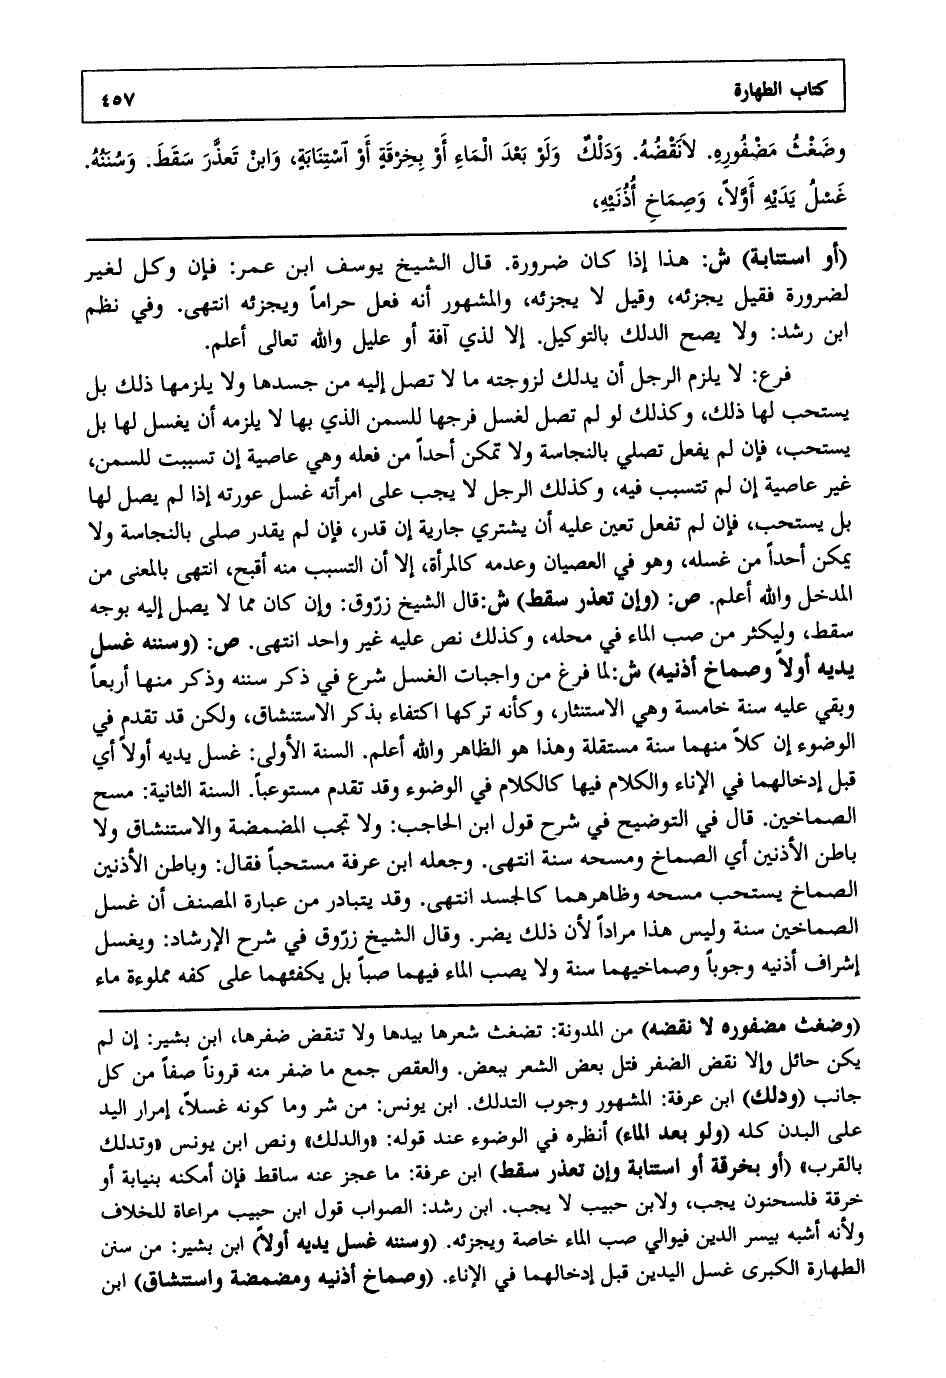 كتاب الطهارة ٤٥٧
وضَغْثُ مَضْفُورِهِ. لاَنَقْضُهُ. وَدَلْكٌ وَلَوْ بَعْدَ الْمَاءِ أَوْ بِخِرْقَةٍ أَوْ آسْتِنَابَةٍ، وَابنْ تَعذَّرَ سَقَطَ. وَسُنَنُهُ.
غَسْلُ يَدَيْهِ أَوَّلاً، وَصِمَاخِ أُذُنَيْهِ،
(أو استنابة) ش: هذا إذا كان ضرورة. قال الشيخ يوسف ابن عمر: فإن وكل لغير
لضرورة فقيل يجزئه، وقيل لا يجزئه، والمشهور أنه فعل حراماً ويجزئه انتهى. وفي نظم
ابن رشد: ولا يصح الدلك بالتوكيل. إلا لذي آفة أو عليل والله تعالى أعلم.
فرع: لا يلزم الرجل أن يدلك لزوجته ما لا تصل إليه من جسدها ولا يلزمها ذلك بل
يستحب لها ذلك، وكذلك لو لم تصل لغسل فرجها للسمن الذي بها لا يلزمه أن يغسل لها بل
يستحب، فإن لم يفعل تصلي بالنجاسة ولا تمكن أحداً من فعله وهي عاصية إن تسببت للسمن،
غير عاصية إن لم تتسبب فيه، وكذلك الرجل لا يجب على امرأته غسل عورته إذا لم يصل لها
بل يستحب، فإن لم تفعل تعين عليه أن يشتري جارية إن قدر، فإن لم يقدر صلى بالنجاسة ولا
يمكن أحداً من غسله، وهو في العصيان وعدمه كالمرأة، إلا أن التسبب منه أقبح، انتهى بالمعنى من
المدخل والله أعلم. ص: (وإن تعذر سقط) ش:قال الشيخ زرّوق: وإن كان مما لا يصل إليه بوجه
سقط، وليكثر من صب الماء في محله، وكذلك نص عليه غير واحد انتهى. ص: (وسننه غسل
يديه أولاً وصماخ أذنيه) ش:لما فرغ من واجبات الغسل شرع في ذكر سننه وذكر منها أربعاً
وبقي عليه سنة خامسة وهي الاستنثار، وكأنه تركها اكتفاء بذكر الاستنشاق، ولكن قد تقدم في
الوضوء إن كلاً منهما سنة مستقلة وهذا هو الظاهر والله أعلم. السنة الأولى: غسل يديه أولاً أي
قبل إدخالهما في الإناء والكلام فيها كالكلام في الوضوء وقد تقدم مستوعباً. السنة الثانية: مسح
الصماخين. قال في التوضيح في شرح قول ابن الحاجب: ولا تجب المضمضة والاستنشاق ولا
باطن الأذنين أي الصماخ ومسحه سنة انتهى. وجعله ابن عرفة مستحباً فقال: وباطن الأذنين
الصماخ يستحب مسحه وظاهرهما كالجسد انتهى. وقد يتبادر من عبارة المصنف أن غسل
الصماخين سنة وليس هذا مراداً لأن ذلك يضر. وقال الشيخ زرّوق في شرح الإرشاد: ويغسل
إشراف أذنيه وجوباً وصماخيهما سنة ولا يصب الماء فيهما صباً بل يكفئهما على كفه مملوءة ماء
(وضغث مضفوره لا نقضه) من المدونة: تضغث شعرها بيدها ولا تنقض ضفرها، ابن بشير: إن لم
يكن حائل وإلا نقض الضفر فتل بعض الشعر ببعض. والعقص جمع ما ضفر منه قروناً صفاً من كل
جانب (ودلك) ابن عرفة: المشهور وجوب التدلك. ابن يونس: من شر وما كونه غسلاً، إمرار اليد
على البدن كله (ولو بعد الماء) أنظره في الوضوء عند قوله: «والدلك» ونص ابن يونس «وتدلك
بالقرب» (أو بخرقة أو استنابة وإن تعذر سقط) ابن عرفة: ما عجز عنه ساقط فإن أمكنه بنيابة أو
خرقة فلسحنون يجب، ولابن حبيب لا يجب. ابن رشد: الصواب قول ابن حبيب مراعاة للخلاف
ولأنه أشبه بيسر الدين فيوالي صب الماء خاصة ويجزئه. (وسننه غسل يديه أولاً) ابن بشير: من سنن
الطهارة الكبرى غسل اليدين قبل إدخالهما في الإناء. (وصماخ أذنيه ومضمضة واستنشاق) ابن